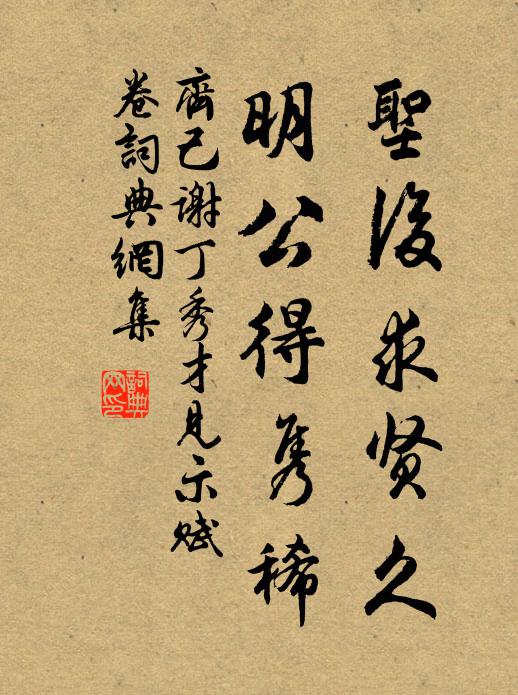 聖後求贤久
明公得隽稀
齊己谢丁秀才見示赋
卷詞典網集
詞典
网印